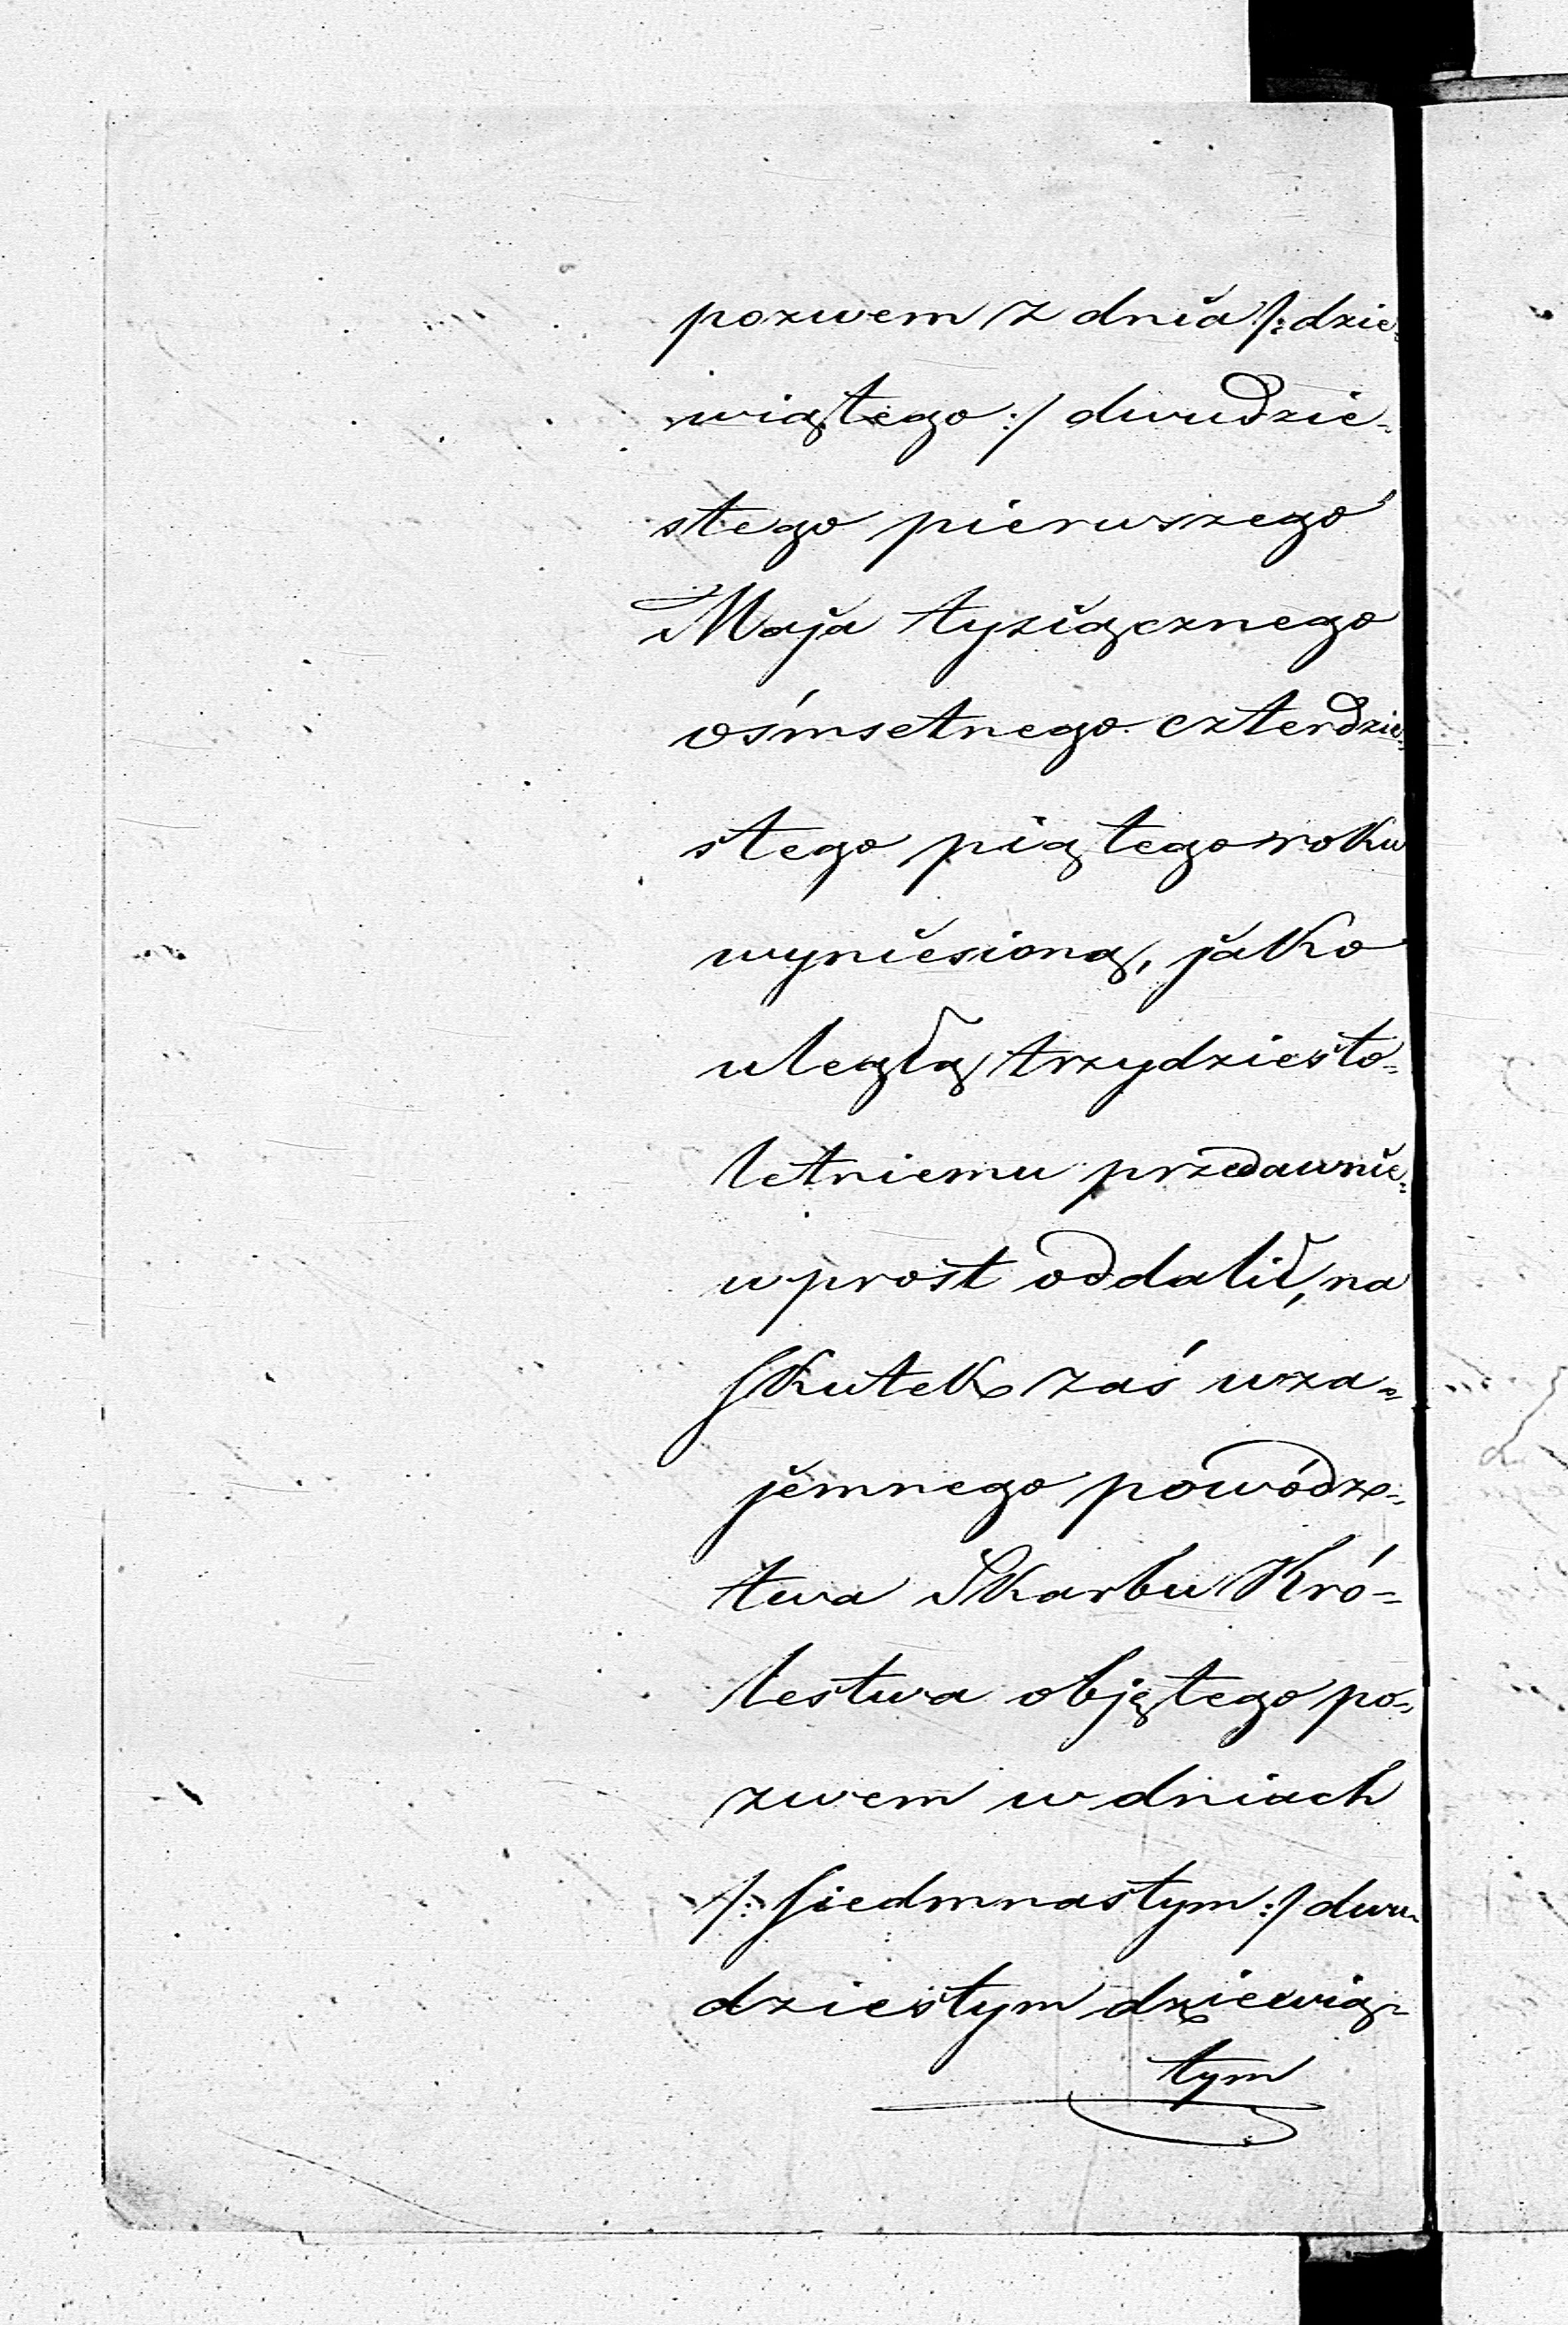 pozwem z dnia /: dzie-
wiątego :/ dwudzie-
stego pierwszego
Maja tysiącznego
ośmsetnego czterdzie-
stego piątego roku
wyniesioną, jako
uległą trzydziesto-
letniemu przedawnie-
wprost oddalił, na
skutek zaś wza-
jemnego powódz-
twa Skarbu Kró-
lestwa objętego po-
zwem w dniach
/: siedmnastym :/ dwu-
dziestym dziewią-
tym